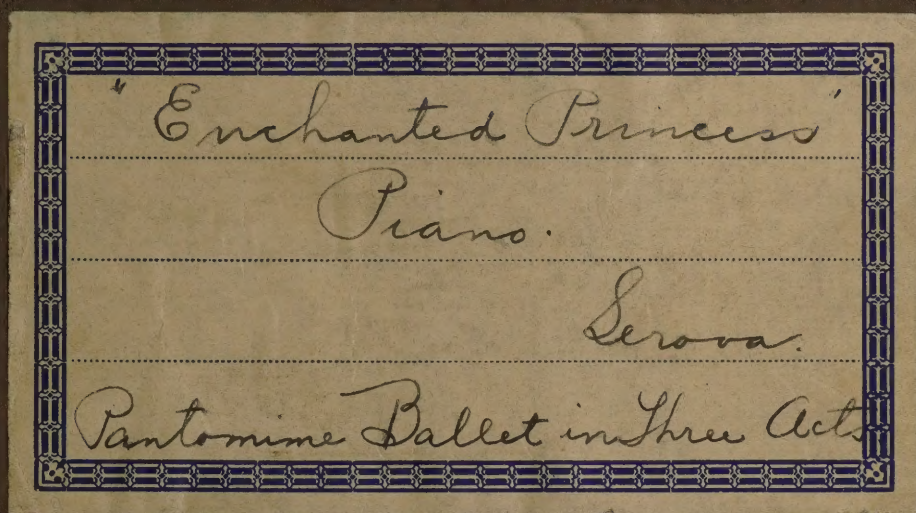 "Enchanted Princess"
Piano.
Serova.
Pantomime Ballet in Three Acts